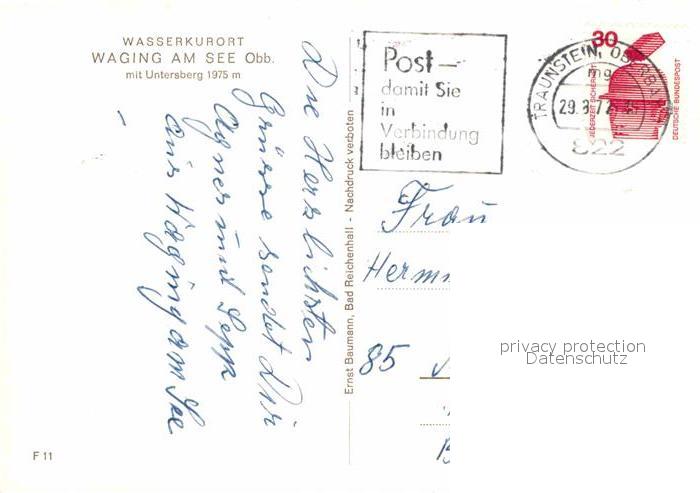 WASSERKURORT
WAGING AM SEE Obb.
mit Untersberg 1975 m
Die Herzlichsten
Grüsse sendet Dir
Agnes und Sepp
aus Waging am See
F 11
Ernst Baumann, Bad Reichenhall - Nachdruck verboten
Post -
damit Sie
in
Verbindung
bleiben
TRAUNSTEIN, OBERBAY
mg
822
30
JEDERZEIT SICHERHEIT
DEUTSCHE BUNDESPOST
Frau
85
privacy protection
Datenschutz